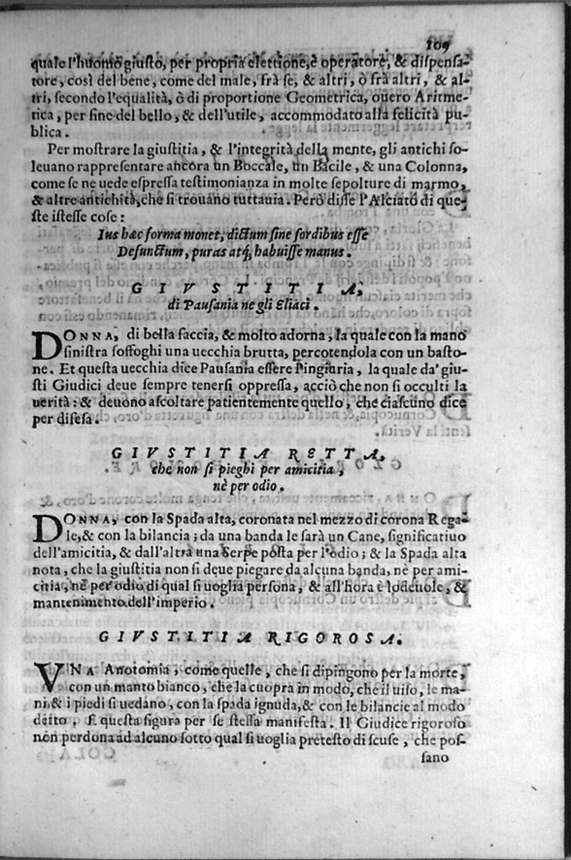 109
quale l'huomo giusto, per propria elettione, è operatore, & dispensa-
tore, così del bene, come del male, frà se, & altri, ò frà altri, & al-
tri, secondo l'equalità, ò di proportione Geometrica, ouero Aritme-
tica, per fine del bello, & dell'utile, accommodato alla felicità pu-
blica.
Per mostrare la giustitia, & l'integrità della mente, gli antichi so-
leuano rappresentare ancora un Boccale, un Bacile, & una Colonna,
come se ne uede espressa testimonianza in molte sepolture di marmo,
& altre antichità, che si trouano tuttauia. Però disse l'Alciato di que-
ste istesse cose:
Ius hæc forma monet, dictum sine sordibus esse
Defunctum, puras atq; habuisse manus.
GIVSTITIA,
di Pausania ne gli Eliaci.
DONNA, di bella faccia, & molto adorna, la quale con la mano
sinistra soffoghi una uecchia brutta, percotendola con un basto-
ne. Et questa uecchia dice Pausania essere l'ingiuria, la quale da' giu-
sti Giudici deue sempre tenersi oppressa, acciò che non si occulti la
uerità: & deuono ascoltare patientemente quello, che ciascuno dice
per difesa.
GIVSTITIA RETTA,
che non si pieghi per amicitia,
nè per odio.
DONNA, con la Spada alta, coronata nel mezzo di corona Rega-
le, & con la bilancia; da una banda le sarà un Cane, significatiuo
dell'amicitia, & dall'altra una Serpe posta per l'odio; & la Spada alta
nota, che la giustitia non si deue piegare da alcuna banda, nè per ami-
citia, nè per odio di qual si uoglia persona, & all'hora è lodeuole, &
mantenimento dell'imperio.
GIVSTITIA RIGOROSA.
VNA Anotomia, come quelle, che si dipingono per la morte,
con un manto bianco, che la cuopra in modo, che il uiso, le ma-
ni, & i piedi si uedano, con la spada ignuda, & con le bilancie al modo
detto. E questa figura per se stessa manifesta. Il Giudice rigoroso
non perdona ad alcuno sotto qual si uoglia pretesto di scuse, che pos-
sano